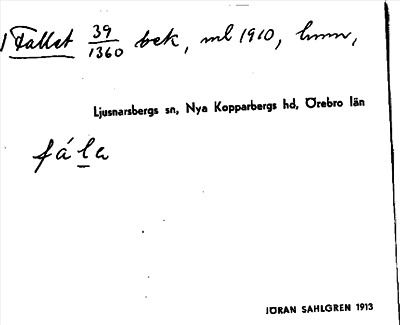 Fallet 39/1360 bek, ml 1910, hmn,
Ljusnarsbergs sn, Nya Kopparbergs hd, Örebro län
fála
JÖRAN SAHLGREN 1913